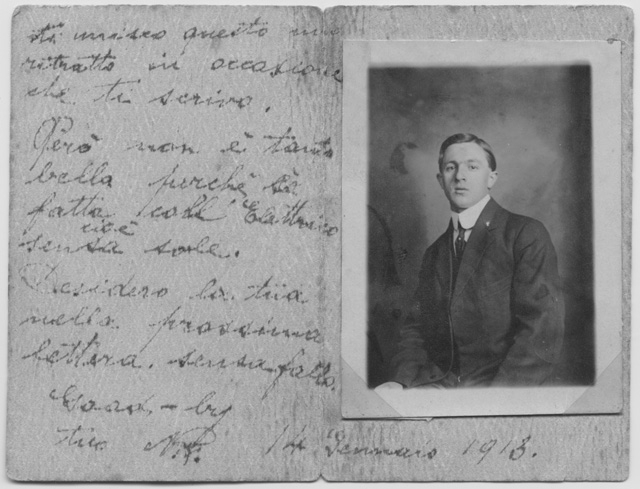 ti unisco questo mio
ritratto in occasione
che ti scrivo.
Però non è tanto
bella perchè è
fatta coll' Elettrico
cioè
sensa sole.
Desidero la tua
nella prossima
lettera. sensa fallo.
Good-by
tuo
14 Gennaio 1913.